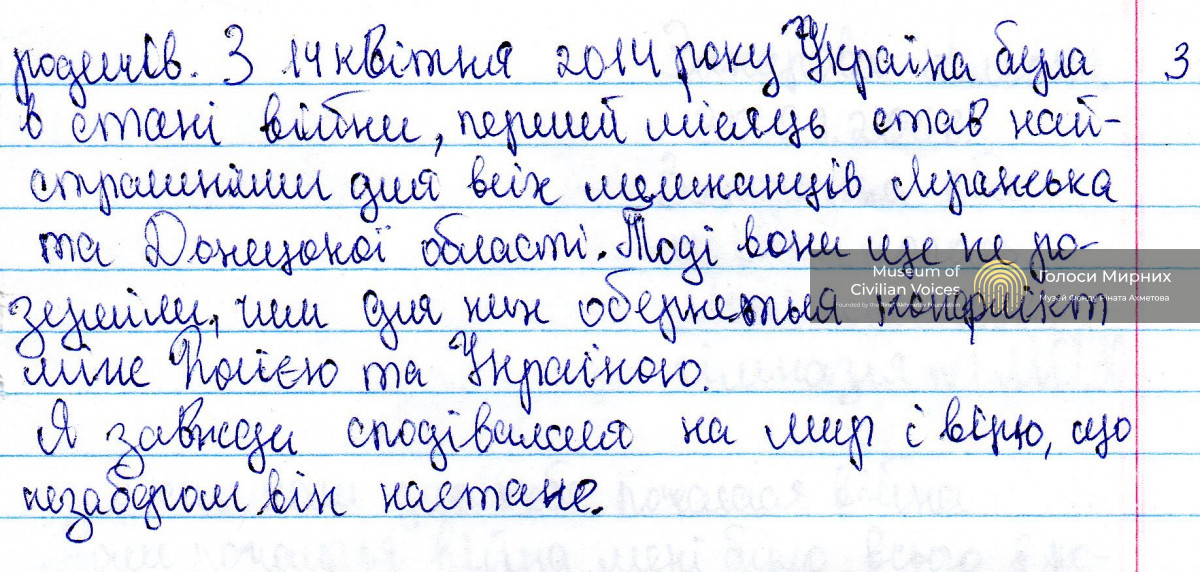 родичів. З 14 квітня 2014 року Україна була
в стані війни, перший місяць став най-
страшнішим для всіх мешканців Луганська
та Донецької області. Тоді вони ще не ро-
зуміли, чим для них обернеться конфлікт
між Росією та Україною.
Я завжди сподівалася на мир і вірю, що
незабаром він настане.
3
Museum of
Civilian Voices
Founded by the Rinat Akhmetov Foundation
Голоси Мирних
Музей Фонду Ріната Ахметова